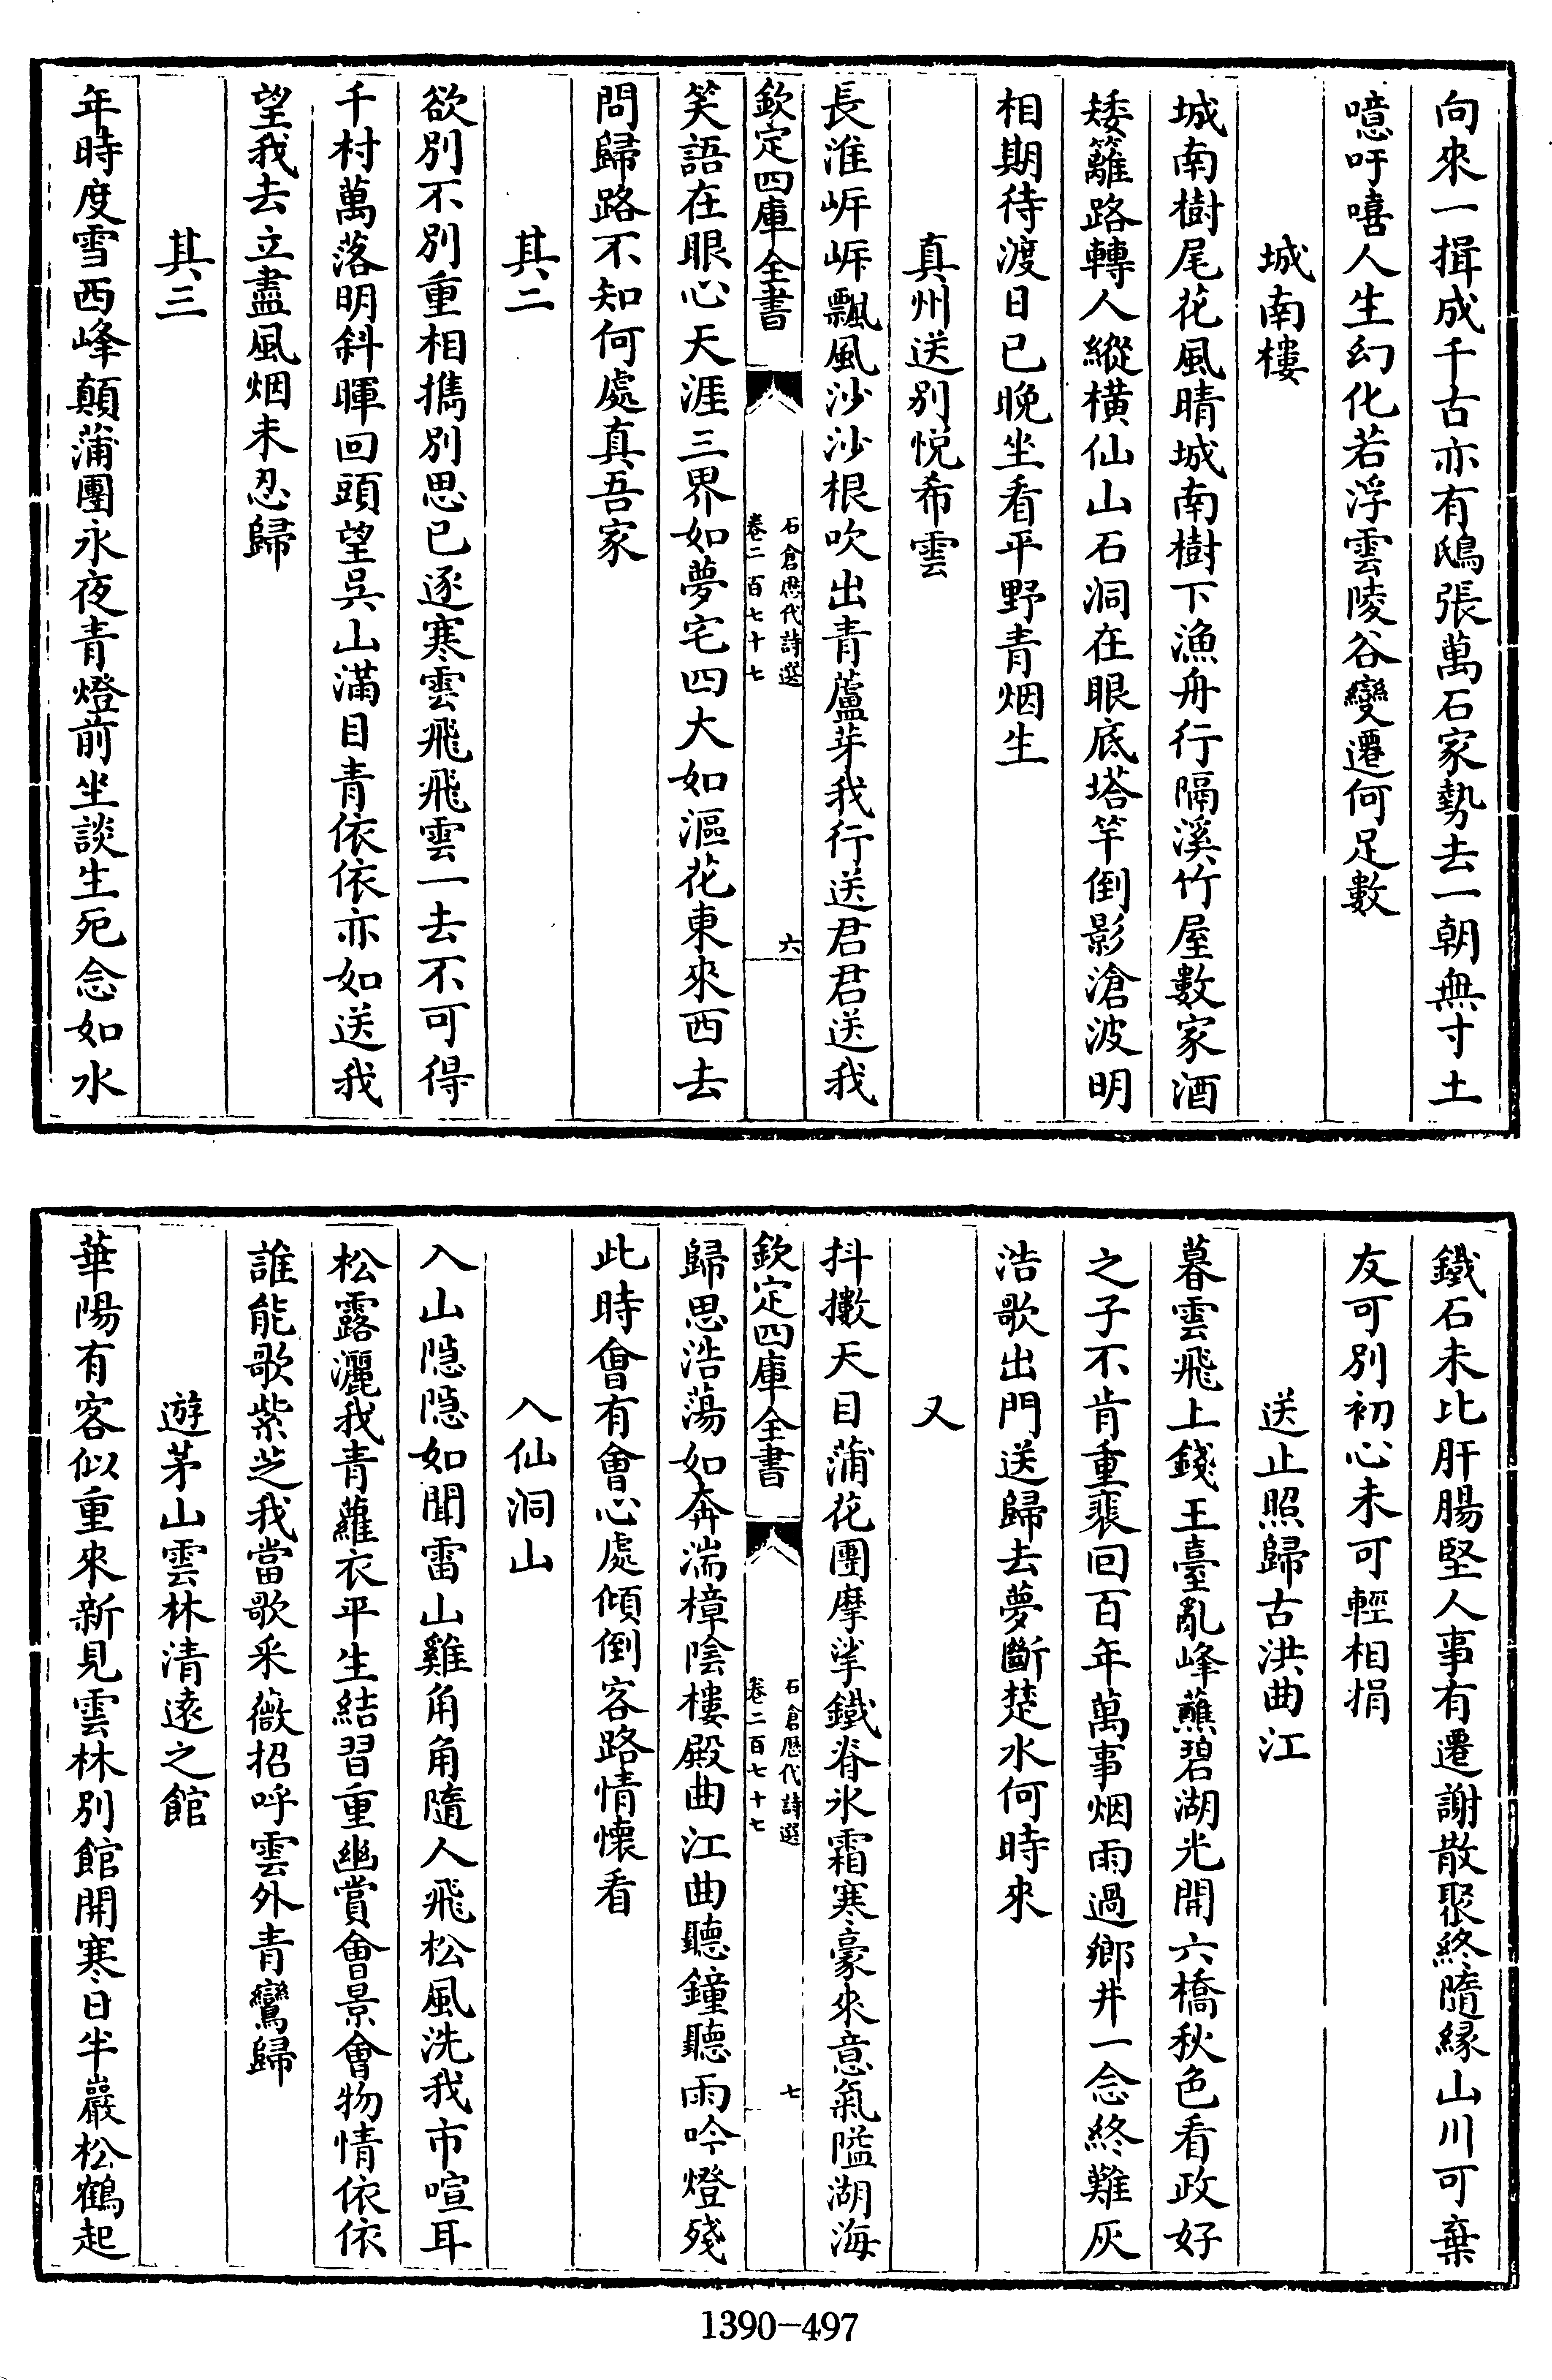 向來一揖成千古亦有鴟張萬石家勢去一朝無寸土
噫吁嘻人生幻化若浮雲陵谷變遷何足數
城南樓
城南樹尾花風晴城南樹下漁舟行隔溪竹屋數家酒
矮籬路轉人縱橫仙山石洞在眼底塔竿倒影滄波明
相期待渡日已晚坐看平野青烟生
真州送別悅希雲
長淮㟁㟁飄風沙沙根吹出青蘆芽我行送君君送我
欽定四庫全書
石倉歴代詩選
卷二百七十七
六
笑語在眼心天涯三界如夢宅四大如漚花東來西去
問歸路不知何處真吾家
其二
欲別不別重相攜別思已逐寒雲飛飛雲一去不可得
千村萬落明斜暉回頭望吳山滿目青依依亦如送我
望我去立盡風烟未忍歸
其三
年時度雪西峰顛蒲團永夜青燈前坐談生死念如水
鐵石未比肝腸堅人事有遷謝散聚終隨緣山川可棄
友可別初心未可輕相捐
送止照歸古洪曲江
暮雲飛上錢王臺亂峰蘸碧湖光開六橋秋色看政好
之子不肯重裴回百年萬事烟雨過鄉井一念終難灰
浩歌出門送歸去夢斷楚水何時來
又
抖擻天目蒲花團摩挲鐵脊氷霜寒豪來意氣隘湖海
欽定四庫全書
石倉歴代詩選
卷二百七十七
七
歸思浩蕩如奔湍樟陰樓殿曲江曲聽鐘聽雨吟燈殘
此時會有會心處傾倒客路情懷看
入仙洞山
入山隱隱如聞雷山雞角角隨人飛松風洗我市喧耳
松露灑我青蘿衣平生結習重幽賞會景會物情依依
誰能歌紫芝我當歌采薇招呼雲外青鸞歸
遊茅山雲林清遠之館
華陽有客似重來新見雲林別館開寒日半巖松鶴起
1390-497